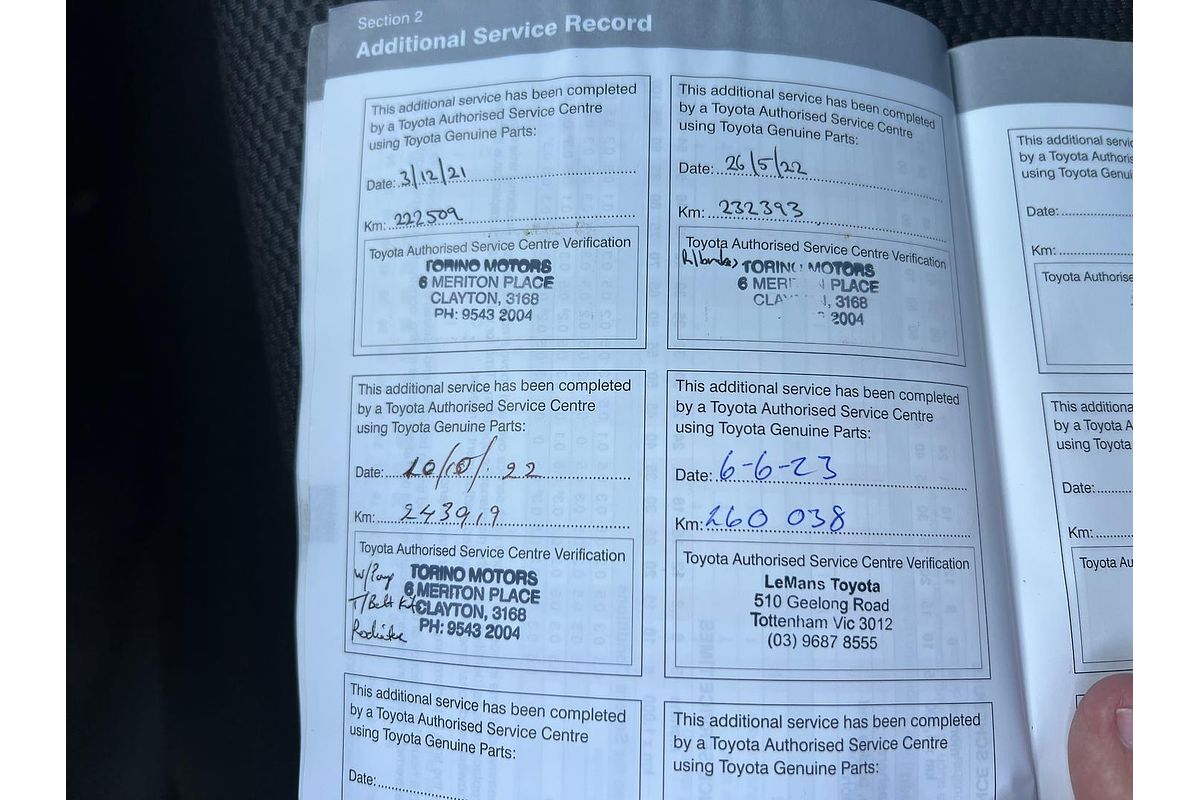 Section 2
Additional Service Record
This additional service has been completed
by a Toyota Authorised Service Centre
using Toyota Genuine Parts:
Date: 3/12/21
Km: 222509
Toyota Authorised Service Centre Verification
TORINO MOTORS
6 MERITON PLACE
CLAYTON, 3168
PH: 9543 2004
This additional service has been completed
by a Toyota Authorised Service Centre
using Toyota Genuine Parts:
Date: 26/5/22
Km: 232393
Toyota Authorised Service Centre Verification
TORINO MOTORS
6 MER PLACE
CLAY , 3168
2004
This additional service has been completed
by a Toyota Authorised Service Centre
using Toyota Genuine Parts:
Date: 22
Km: 243919
Toyota Authorised Service Centre Verification
TORINO MOTORS
6 MERITON PLACE
T/Belt Kit CLAYTON, 3168
PH: 9543 2004
This additional service has been completed
by a Toyota Authorised Service Centre
using Toyota Genuine Parts:
Date: 6-6-23
Km: 260 038
Toyota Authorised Service Centre Verification
LeMans Toyota
510 Geelong Road
Tottenham Vic 3012
(03) 9687 8555
This additional service has been completed
by a Toyota Authorised Service Centre
using Toyota Genuine Parts:
Date:
This additional service has been completed
by a Toyota Authorised Service Centre
using Toyota Genuine Parts:
This additional servic
by a Toyota Authoris
using Toyota Genui
Date:
Km:
Toyota Authorise
This additiona
by a Toyota A
using Toyota
Date:
Km:
Toyota Au